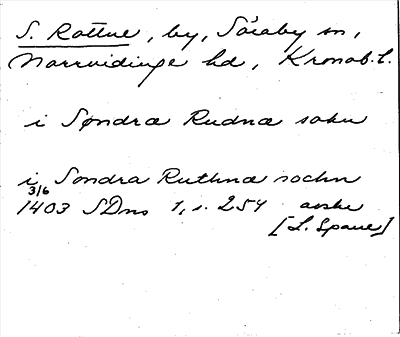 S. Rottne, by, Söraby sn,
Norrvidinge hd, Kronob. l.
i Søndra Rudna sokn
i Sondra Ruthna sochn
3/6
1403 SDns 1, s. 254 avskr
[L. Spaue]